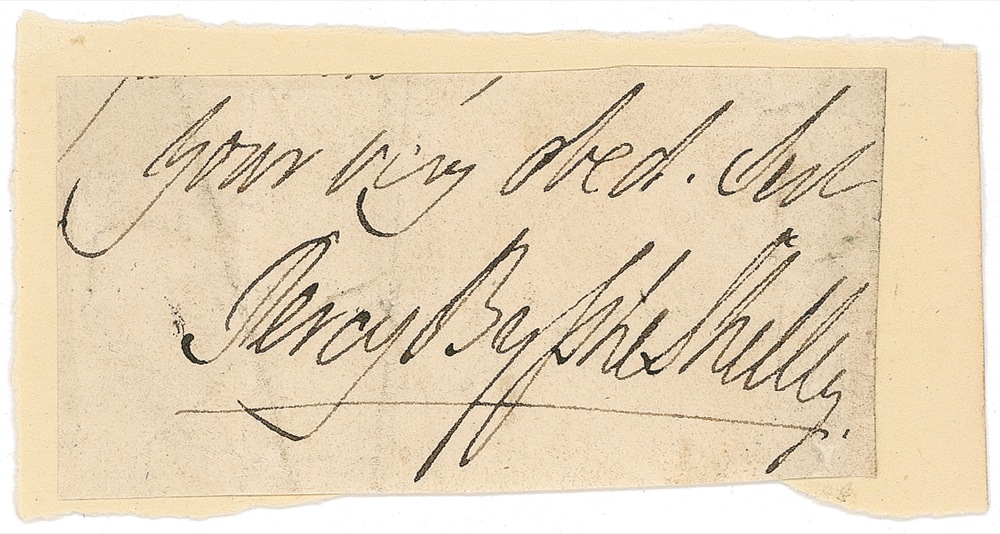 Your very obed. Sert
Percy Bysshe Shelley.